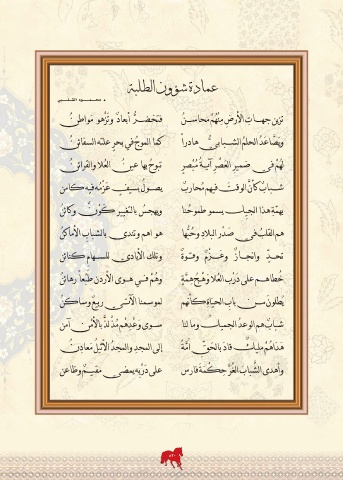 عمادة شؤون الطلبة
تزين جهات الأرض منهم محاسن فتخضر أبعاد وتزهو مواطن
ويصاعد الحلم الشبابي هادرا كما الموج في بحر علته السفائن
لهم في ضمير العصر آية مبصر تبوح بها عين العلا والقرائن
شباب كأن الوقت فيهم محارب يصول بسيف عزمه فيه كامن
بهمة هذا الجيل يسمو طموحنا ويهجس بالتغيير كون وكائن
هم القلب في صدر البلاد وحبها هواهم وتندى بالشباب الأماكن
تحد وإنجاز وعزم وقوة وتلك الأيادي للسهام كنائن
خطاهم على درب العلا وهج همة وهم في هوى الأردن طبعا رهائن
يطلون من باب الحياة كأنهم لموسمنا الآتي ربيع وساكن
شباب هم الوعد الجميل وما لنا سوى وعدهم مذ لذ بالأمن آمن
هداهم مليك قاد بالحق أمة إلى المجد والمجد الأثيل معادن
وأهدى الشباب الغر حكمة فارس على دربه يمضي مقيم وظاعن